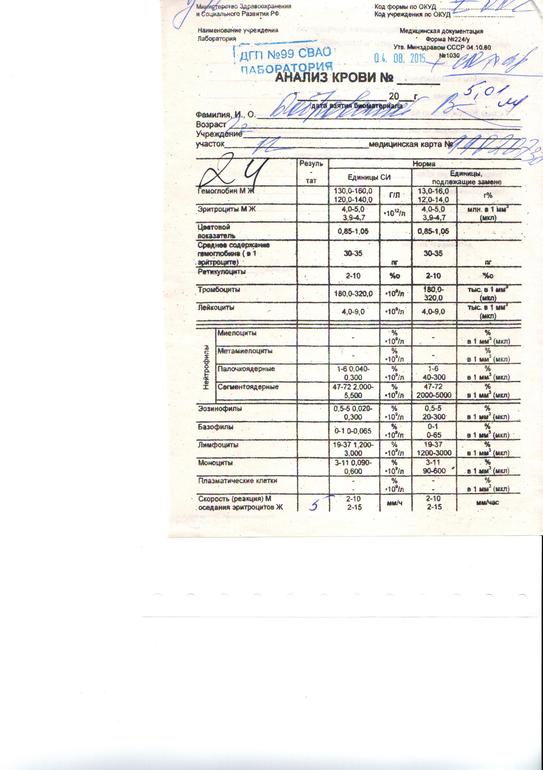 Министерство Здравоохранения
и Социального Развития РФ
Код формы по ОКУД
Код учреждения по ОКУД
Наименование учреждения
Лаборатория
Медицинская документация
Форма №224/у
Утв. Минздравом СССР 04.10.80
№1030
ДГП №99 СВАО
ЛАБОРАТОРИЯ
04. 08. 2015
АНАЛИЗ КРОВИ №
20 г.
дата взятия биоматериала
Фамилия, И., О.
Возраст
Учреждение
участок медицинская карта №
24
Резуль-тат Норма
Единицы СИ Единицы, подлежащие замене
Гемоглобин М Ж 130,0-160,0 120,0-140,0 Г/Л 13,0-16,0 12,0-14,0 г%
Эритроциты М Ж 4,0-5,0 3,9-4,7 •10¹²/л 4,0-5,0 3,9-4,7 млн. в 1 мм³ (мкл)
Цветовой показатель 0,85-1,05 0,85-1,05
Среднее содержание гемоглобина ( в 1 эритроците) 30-35 пг 30-35 пг
Ретикулоциты 2-10 %о 2-10 %о
Тромбоциты 180,0-320,0 •10⁹/л 180,0-320,0 тыс. в 1 мм³ (мкл)
Лейкоциты 4,0-9,0 •10⁹/л 4,0-9,0 тыс. в 1 мм³ (мкл)
Нейтрофилы
Миелоциты - % •10⁹/л - % в 1 мм³ (мкл)
Метамиелоциты - % •10⁹/л - % в 1 мм³ (мкл)
Палочкоядерные 1-6 0,040-0,300 % •10⁹/л 1-6 40-300 % в 1 мм³ (мкл)
Сегментоядерные 47-72 2,000-5,500 % •10⁹/л 47-72 2000-5000 % в 1 мм³ (мкл)
Эозинофилы 0,5-5 0,020-0,300 % •10⁹/л 0,5-5 20-300 % в 1 мм³ (мкл)
Базофилы 0-1 0-0,065 % •10⁹/л 0-1 0-65 % в 1 мм³ (мкл)
Лимфоциты 19-37 1,200-3,000 % •10⁹/л 19-37 1200-3000 % в 1 мм³ (мкл)
Моноциты 3-11 0,090-0,600 % •10⁹/л 3-11 90-600 % в 1 мм³ (мкл)
Плазматические клетки - - % •10⁹/л - - % в 1 мм³ (мкл)
Скорость (реакция) М оседания эритроцитов Ж 5 2-10 2-15 мм/ч 2-10 2-15 мм/час